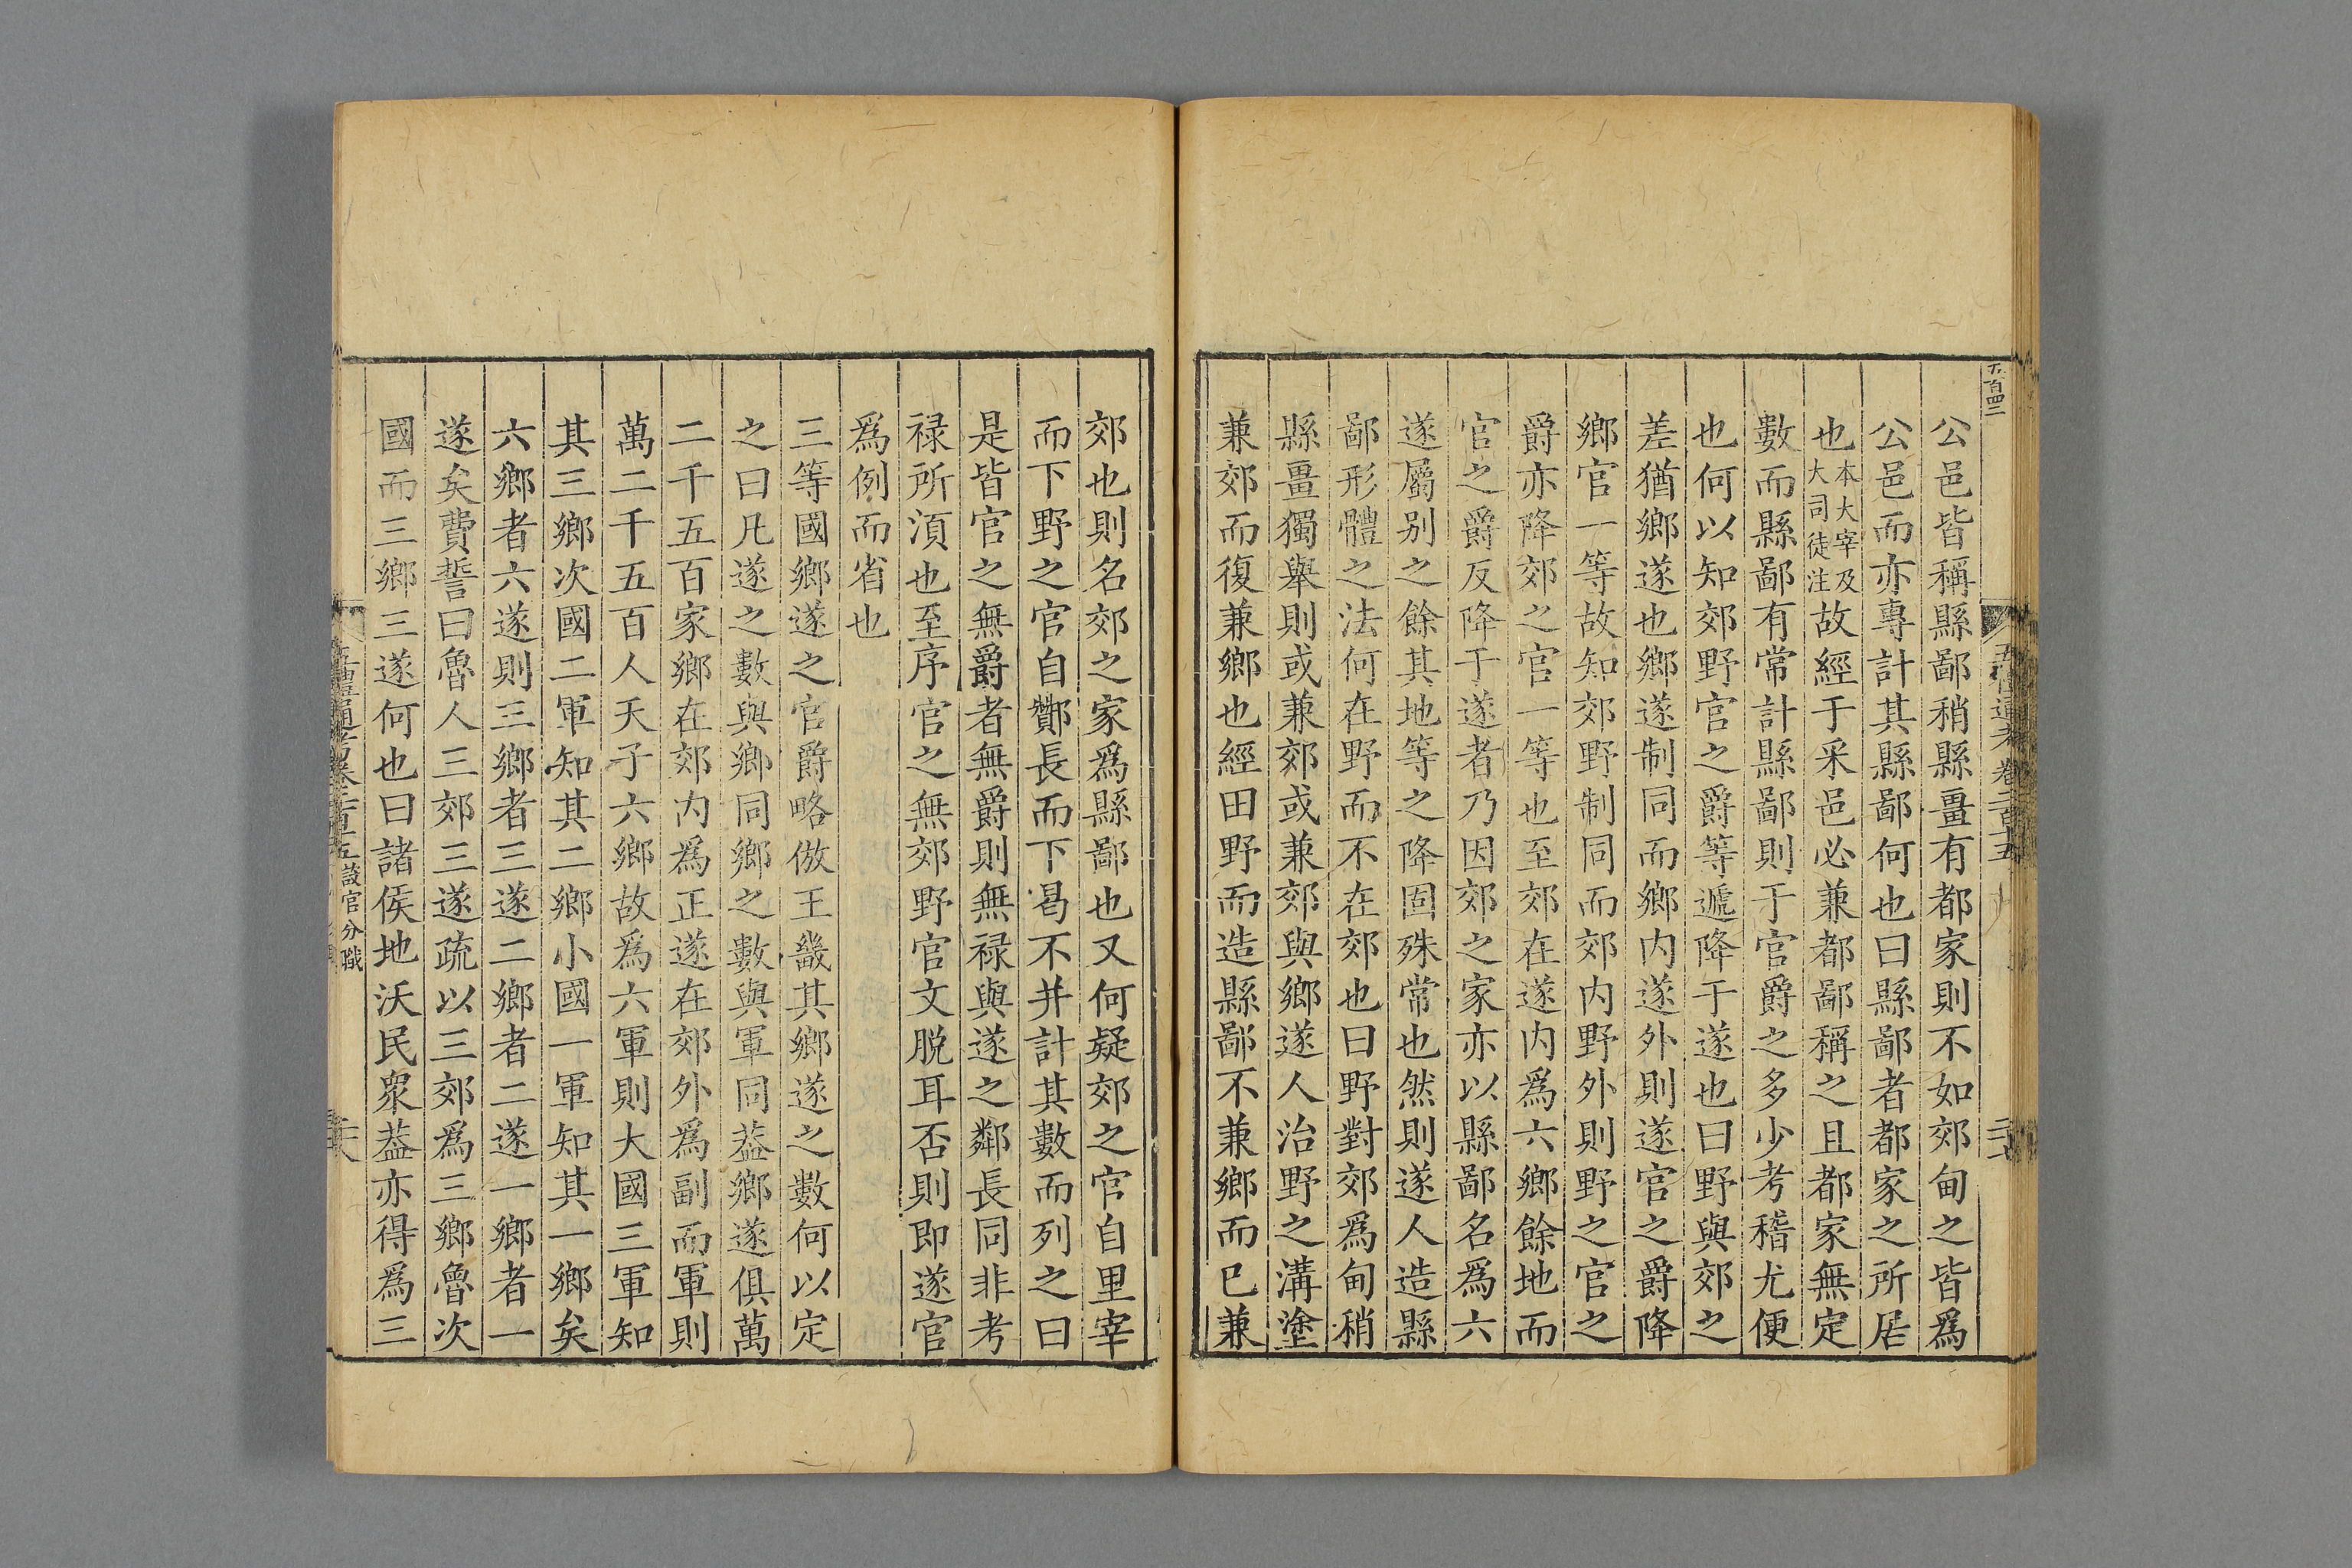 公邑皆稱縣鄙稍縣畺有都家則不如郊甸之皆爲
公邑而亦專計其縣鄙何也曰縣鄙者都家之所居
也本大宰及大司徒注故經于采邑必兼都鄙稱之且都家無定
數而縣鄙有常計縣鄙則于官爵之多少考稽尤便
也何以知郊野官之爵等遞降于遂也曰野與郊之
差猶鄉遂也鄉遂制同而鄉内遂外則遂官之爵降
鄉官一等故知郊野制同而郊内野外則野之官之
爵亦降郊之官一等也至郊在遂内爲六鄉餘地而
官之爵反降于遂者乃因郊之家亦以縣鄙名爲六
遂屬别之餘其地等之降固殊常也然則遂人造縣
鄙形體之法何在野而不在郊也曰野對郊爲甸稍
縣畺獨舉則或兼郊或兼郊與鄉遂人治野之溝塗
兼郊而復兼鄉也經田野而造縣鄙不兼鄉而已兼
郊也則名郊之家爲縣鄙也又何疑郊之官自里宰
而下野之官自酇長而下曷不并計其數而列之曰
是皆官之無爵者無爵則無禄與遂之鄰長同非考
禄所湏也至序官之無郊野官文脱耳否則即遂官
爲例而省也
三等國鄉遂之官爵略倣王畿其鄉遂之數何以定
之曰凡遂之數與鄉同鄉之數與軍同葢鄉遂俱萬
二千五百家鄉在郊内爲正遂在郊外爲副而軍則
萬二千五百人天子六鄉故爲六軍則大國三軍知
其三鄉次國二軍知其二鄉小國一軍知其一鄉矣
六鄉者六遂則三鄉者三遂二鄉者二遂一鄉者一
遂矣費誓曰魯人三郊三遂疏以三郊爲三鄉魯次
國而三鄉三遂何也曰諸侯地沃民衆葢亦得爲三
五禮通考卷二百十五 設官分職